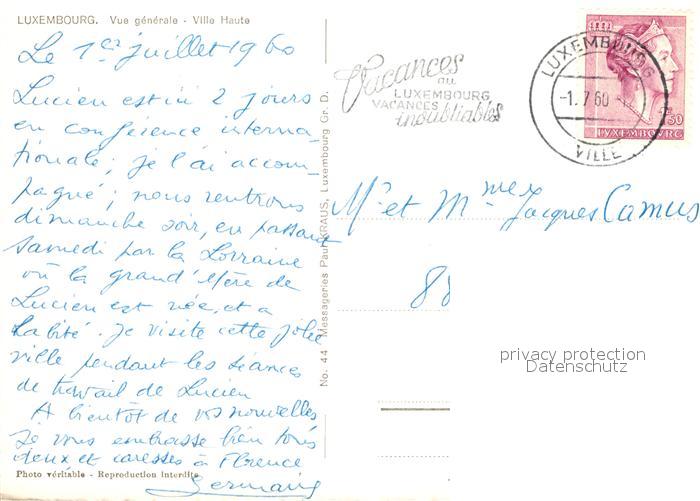 LUXEMBOURG. Vue générale - Ville Haute
Le 1er juillet 1960
Lucien est ici 2 jours
en conférence interna-
tionale ; je l'ai accom-
pagné ; nous rentrons
dimanche soir, en passant
samedi par la Lorraine
où la grand'Mère de
Lucien est née, et a
habité. Je visite cette jolie
ville pendant les séances
de travail de Lucien
A bientôt de vos nouvelles
Je vous embrasse bien tous
deux et caresses à Florence
Germaine
Photo véritable - Reproduction interdite
No. 44 - Messageries Paul KRAUS, Luxembourg Gr. D.
Vacances
au
LUXEMBOURG
VACANCES
inoubliables
LUXEMBOURG
-1.7.60
VILLE
50
LUXEMBOURG
Mr et Mme Jacques Camus
88
privacy protection
Datenschutz